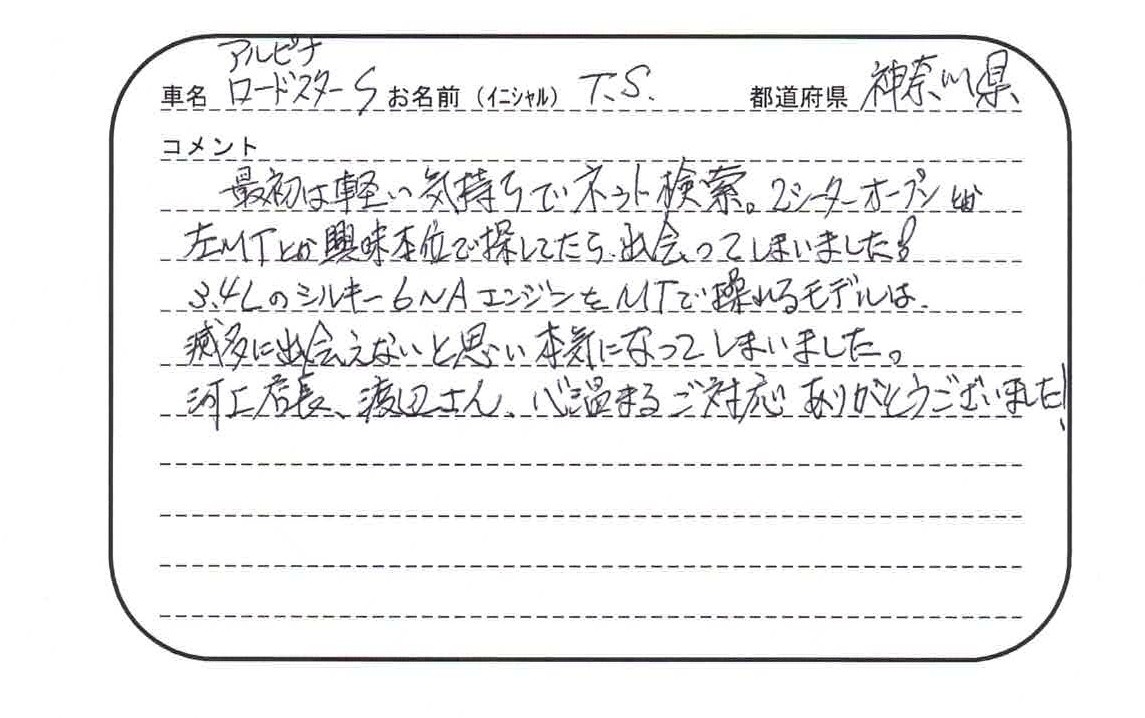 アルピナ
車名 ロードスターS お名前（イニシャル） T.S. 都道府県 神奈川県
コメント
最初は軽い気持ちでネット検索。2シーターオープンとか
左MTとか興味本位で探してたら、出会ってしまいました!
3.4Lのシルキー6NAエンジンをMTで操れるモデルは、
滅多に出会えないと思い本気になってしまいました。
河上店長、渡辺さん、心温まるご対応ありがとうございました!